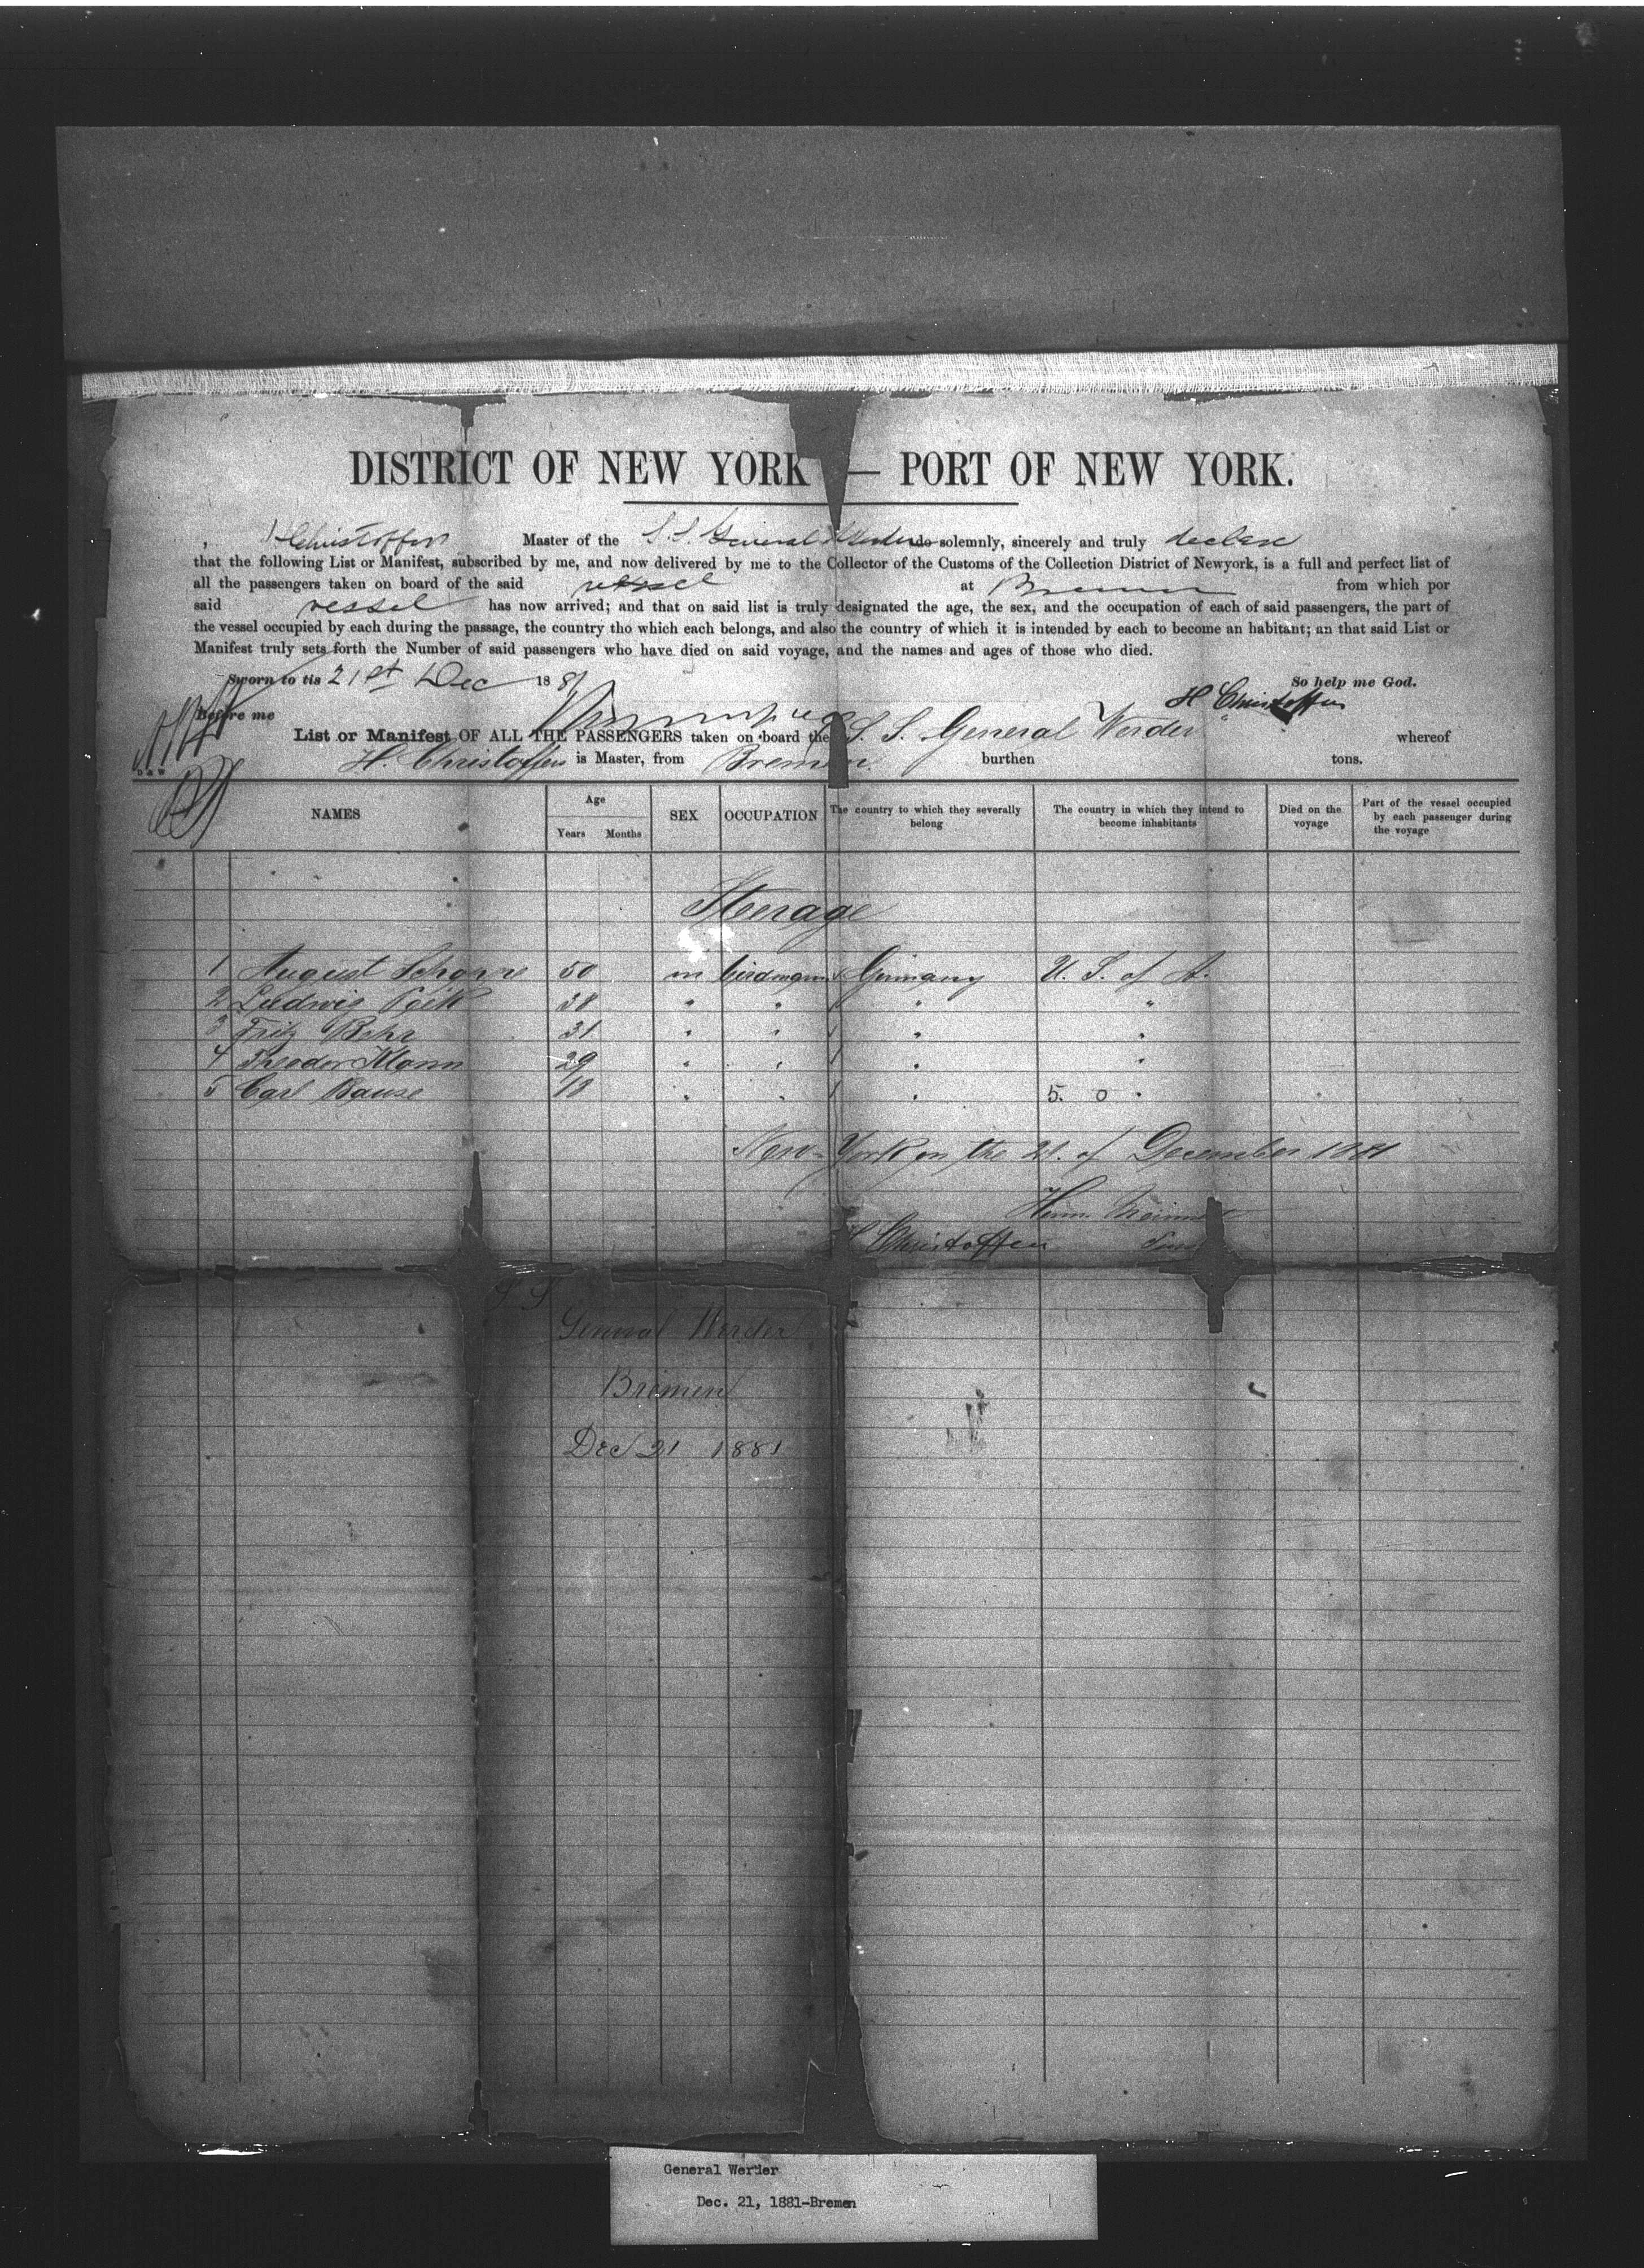 DISTRICT OF NEW YORK — PORT OF NEW YORK.
, H Christoffers Master of the S. S. General Werder do solemnly, sincerely and truly declare
that the following List or Manifest, subscribed by me, and now delivered by me to the Collector of the Customs of the Collection District of Newyork, is a full and perfect list of
all the passengers taken on board of the said vessel at Bremen from which por
said vessel has now arrived; and that on said list is truly designated the age, the sex, and the occupation of each of said passengers, the part of
the vessel occupied by each during the passage, the country tho which each belongs, and also the country of which it is intended by each to become an habitant; an that said List or
Manifest truly sets forth the Number of said passengers who have died on said voyage, and the names and ages of those who died.
Sworn to tis 21st Dec 1881 So help me God.
H Christoffers
Before me
List or Manifest OF ALL THE PASSENGERS taken on board the S. S. General Werder whereof
H. Christoffers is Master, from Bremen burthen tons.
D & W
NAMES Age Years Months SEX OCCUPATION The country to which they severally belong The country in which they intend to become inhabitants Died on the voyage Part of the vessel occupied by each passenger during the voyage
Sterage
1 August 50 m birdmann Germany U. S. of A.
2 Ludwig 38 " " " "
3 Fritz Behr 31 " " " "
4 Theodor Klann 29 " " " "
5 Carl Bause 18 " " " 5. 0 "
New-York on the 21. of December 1881
Herm.
H Christoffers
S S
General Werder
Bremen
Dec 21 1881
General Werder
Dec. 21, 1881-Bremen